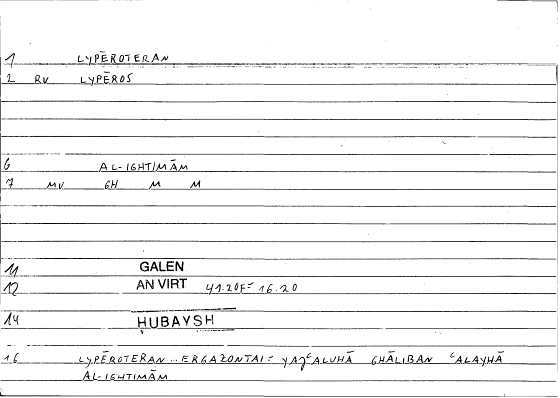 1 LYPĒROTERAN
2 RV LYPĒROS
6 AL-IGHTIMĀM
7 MV GH M M
11 GALEN
12 AN VIRT 41.20F = 16.20
14 ḤUBAYSH
16 LYPĒROTERAN … ERGAZONTAI = YAJʿALUHĀ GHĀLIBAN ʿALAYHĀ
AL-IGHTIMĀM